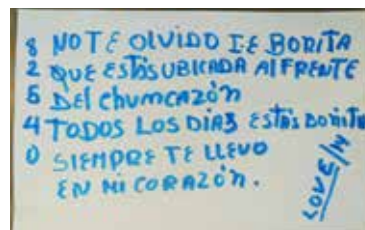 8 NO TE OLVIDO I.E BORITA
2 QUE ESTÁS UBICADA AI FRENTE
5 DEl ChUMCAZÓN
4 TODOS LOS DIAS ESTÁS BOÑITA
0 SIEMPRE TE LLEVO
EN MI CORAZÓN.
LOVE/M